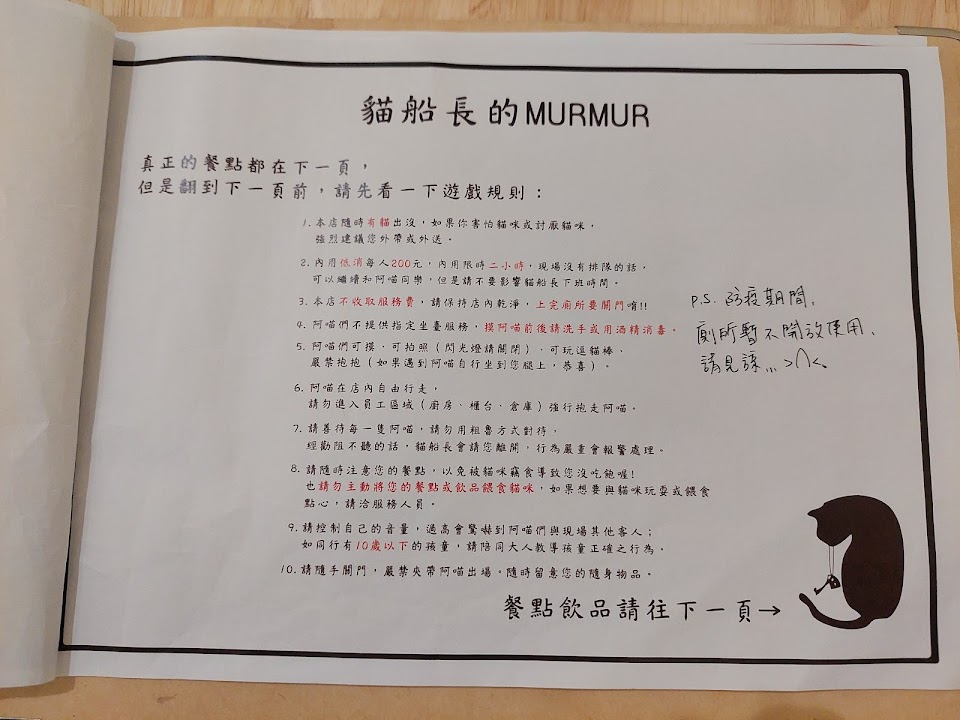 貓船長的MURMUR
真正的餐點都在下一頁，
但是翻到下一頁前，請先看一下遊戲規則：
1. 本店隨時有貓出沒，如果你害怕貓咪或討厭貓咪，
強烈建議您外帶或外送。
2. 內用低消每人200元，內用限時二小時，現場沒有排隊的話，
可以繼續和阿喵同樂，但是請不要影響貓船長下班時間。
3. 本店不收取服務費，請保持店內乾淨，上完廁所要關門唷!!
4. 阿喵們不提供指定坐檯服務，摸阿喵前後請洗手或用酒精消毒。
5. 阿喵們可摸、可拍照（閃光燈請關閉）、可玩逗貓棒、
嚴禁抱抱（如果遇到阿喵自行坐到您腿上，恭喜）。
6. 阿喵在店內自由行走，
請勿進入員工區域（廚房、櫃台、倉庫）強行抱走阿喵。
7. 請善待每一隻阿喵，請勿用粗魯方式對待，
經勸阻不聽的話，貓船長會請您離開，行為嚴重會報警處理。
8. 請隨時注意您的餐點，以免被貓咪竊食導致您沒吃飽喔!
也請勿主動將您的餐點或飲品餵食貓咪，如果想要與貓咪玩耍或餵食
點心，請洽服務人員。
9. 請控制自己的音量，過高會驚嚇到阿喵們與現場其他客人；
如同行有10歲以下的孩童，請陪同大人教導孩童正確之行為。
10. 請隨手關門，嚴禁夾帶阿喵出場。隨時留意您的隨身物品。
P.S. 防疫期間，
廁所暫不開放使用、
請見諒...>∩<
餐點飲品請往下一頁→